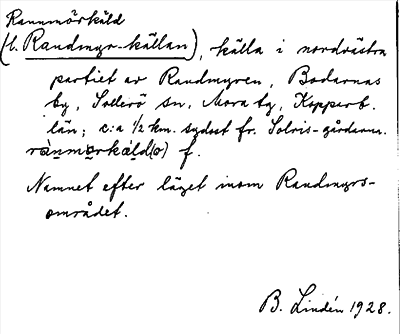 Rannmörkäld
(l. Randmyr-källan), källa i nordvästra
partiet av Randmyren, Bodarnas
by, Sollerö sn, Mora tg, Kopparb.
län; c:a 1/2 km. sydost fr. Solris-gårdarna.
rànmơrkäld(ơ) f.
Namnet efter läget inom Randmyrs-
området.
B. Lindén 1928.